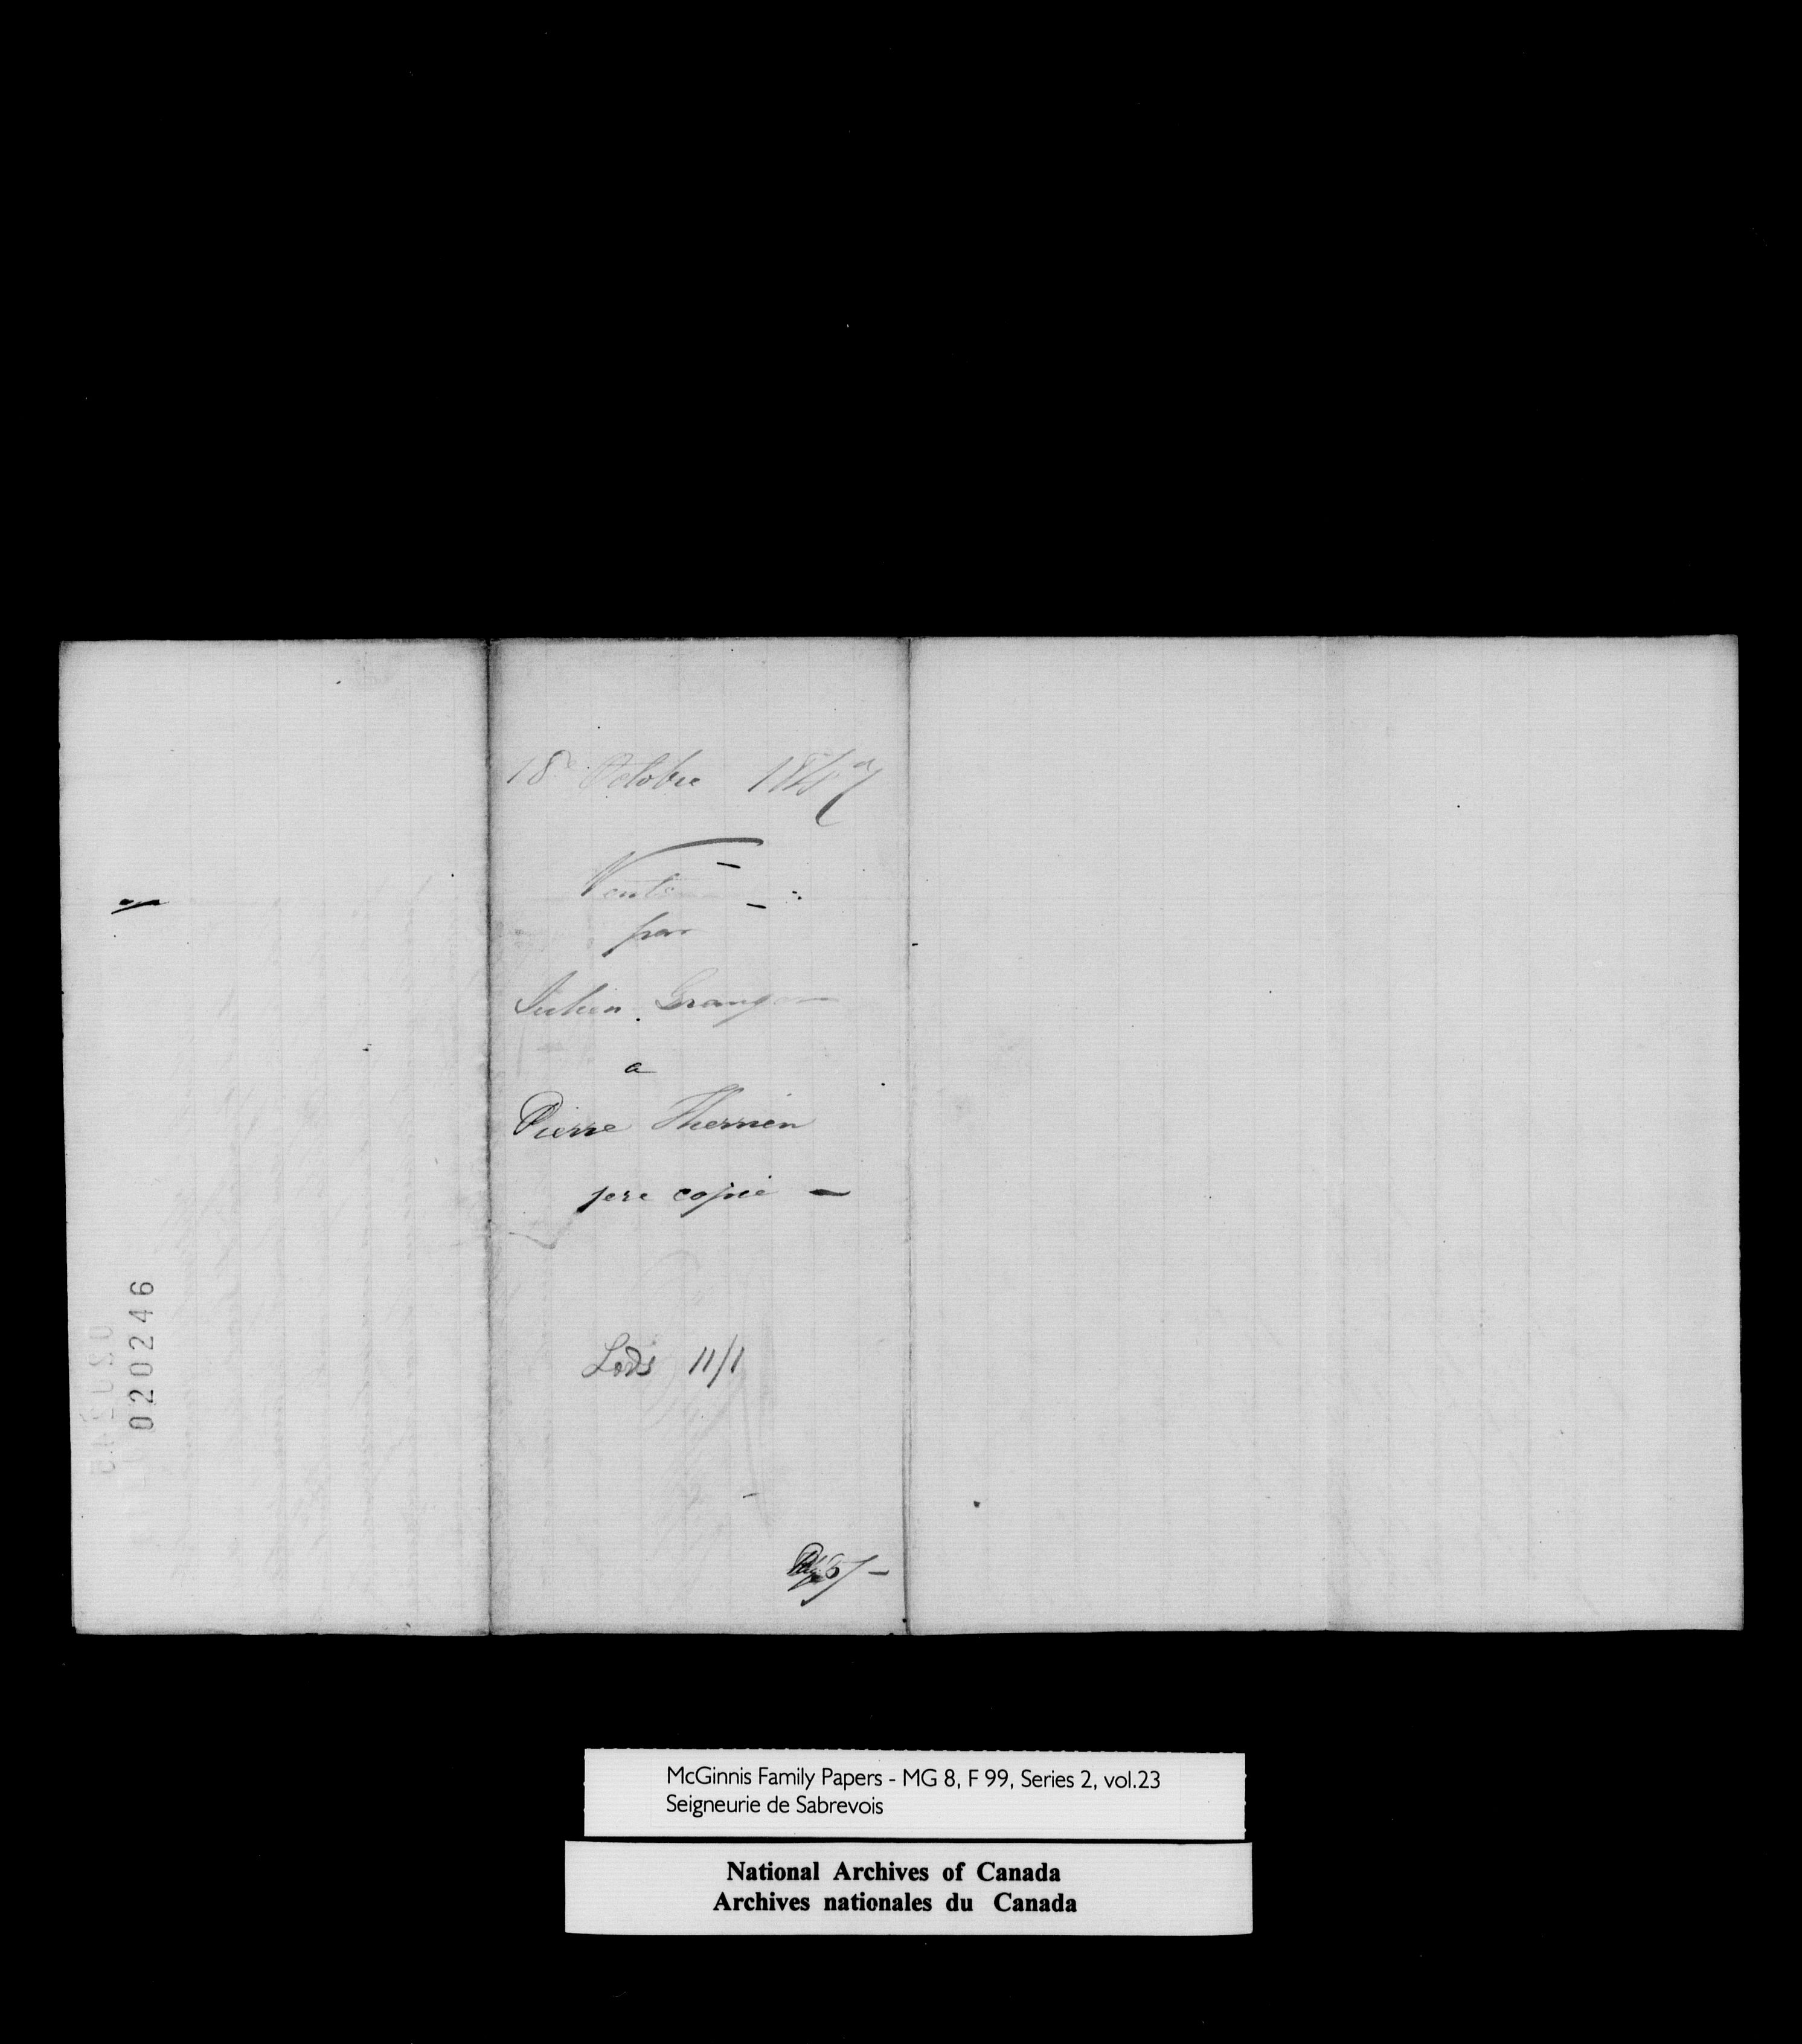 18e Octobre 1847
Vente
par
Julien Grange
a
Pierre Therrien
pere copie —
Lods 11/1
5/-
020246
McGinnis Family Papers - MG 8, F 99, Series 2, vol.23
Seigneurie de Sabrevois
National Archives of Canada
Archives nationales du Canada